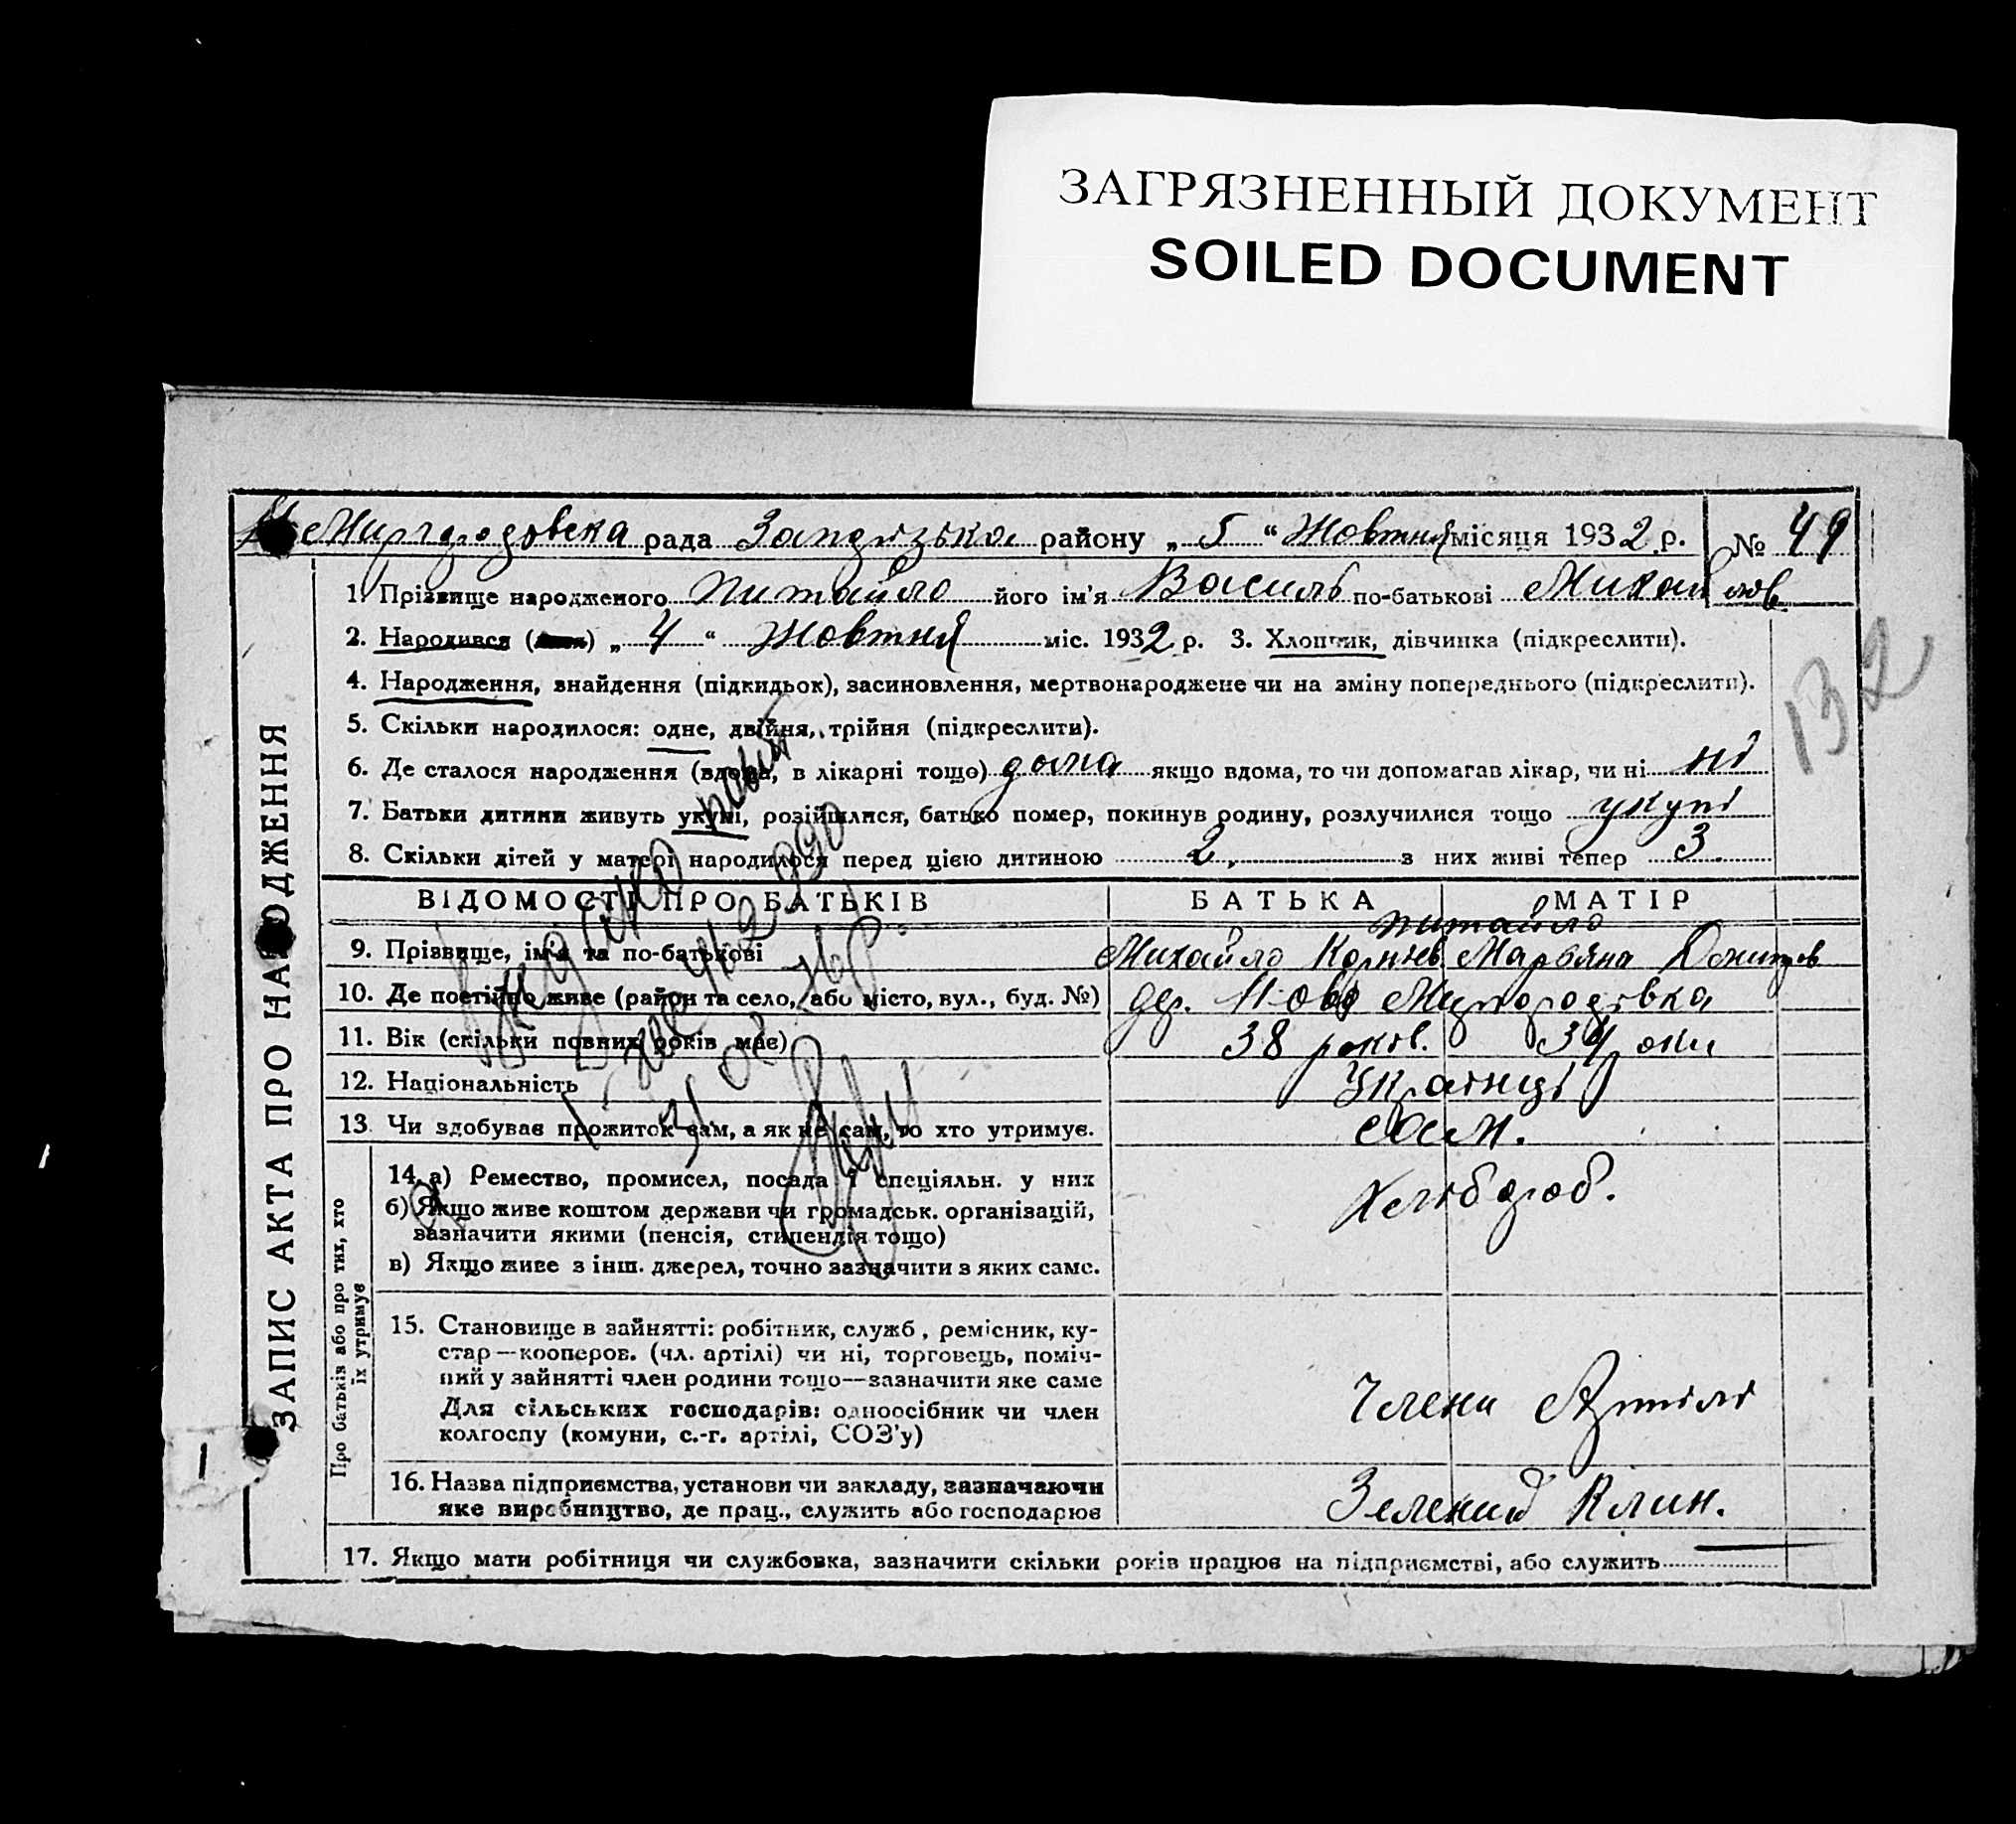 ЗАГРЯЗНЕННЫЙ ДОКУМЕНТ
SOILED DOCUMENT
Миргородовска рада Запорізька району „ 5 “ Жовтня місяця 1932 р. № 49
1. Прізвище народженого Питайло його ім'я Василь по-батькові Михайлов
2. Народився () „ 4 “ Жовтня міс. 1932 р. 3. Хлопчик, дівчинка (підкреслити).
4. Народження, знайдення (підкидьок), засиновлення, мертвонароджене чи на зміну попереднього (підкреслити).
5. Скільки народилося: одне, двійня, трійня (підкреслити).
6. Де сталося народження (вдома, в лікарні тощо) дома якщо вдома, то чи допомагав лікар, чи ні ні
7. Батьки дитини живуть укупі, розійшлися, батько помер, покинув родину, розлучилися тощо укупі
8. Скільки дітей у матері народилося перед цією дитиною 2, з них живі тепер 3
132
ВІДОМОСТІ ПРО БАТЬКІВ БАТЬКА МАТІР
Питайло
9. Прізвище, ім'я та по-батькові Михайло Корніев Марьяна
10. Де постійно живе (район та село, або місто, вул., буд. №) дер. Ново Миргородовка
11. Вік (скільки повних років має) 38 років. 34 роки
12. Національність Українці
13. Чи здобуває прожиток сам, а як не сам, то хто утримує. Сам.
14. а) Ремество, промисел, посада і спеціяльн. у них Хлібороб.
б) Якщо живе коштом держави чи громадськ. організацій,
зазначити якими (пенсія, стипендія тощо)
в) Якщо живе з інш. джерел, точно зазначити з яких саме.
15. Становище в зайнятті: робітник, служб, ремісник, ку-
стар—кооперов. (чл. артілі) чи ні, торговець, поміч-
ний у зайнятті член родини тощо—зазначити яке саме
Для сільських господарів: одноосібник чи член
колгоспу (комуни, с.-г. артілі, СОЗ'у) Члени Артілі
16. Назва підприємства, установи чи закладу, зазначаючи
яке виробництво, де прац., служить або господарює Зелений Клин.
17. Якщо мати робітниця чи службовка, зазначити скільки років працює на підприємстві, або служить
ЗАПИС АКТА ПРО НАРОДЖЕННЯ
Про батьків або про тих, хто
їх утримує
1